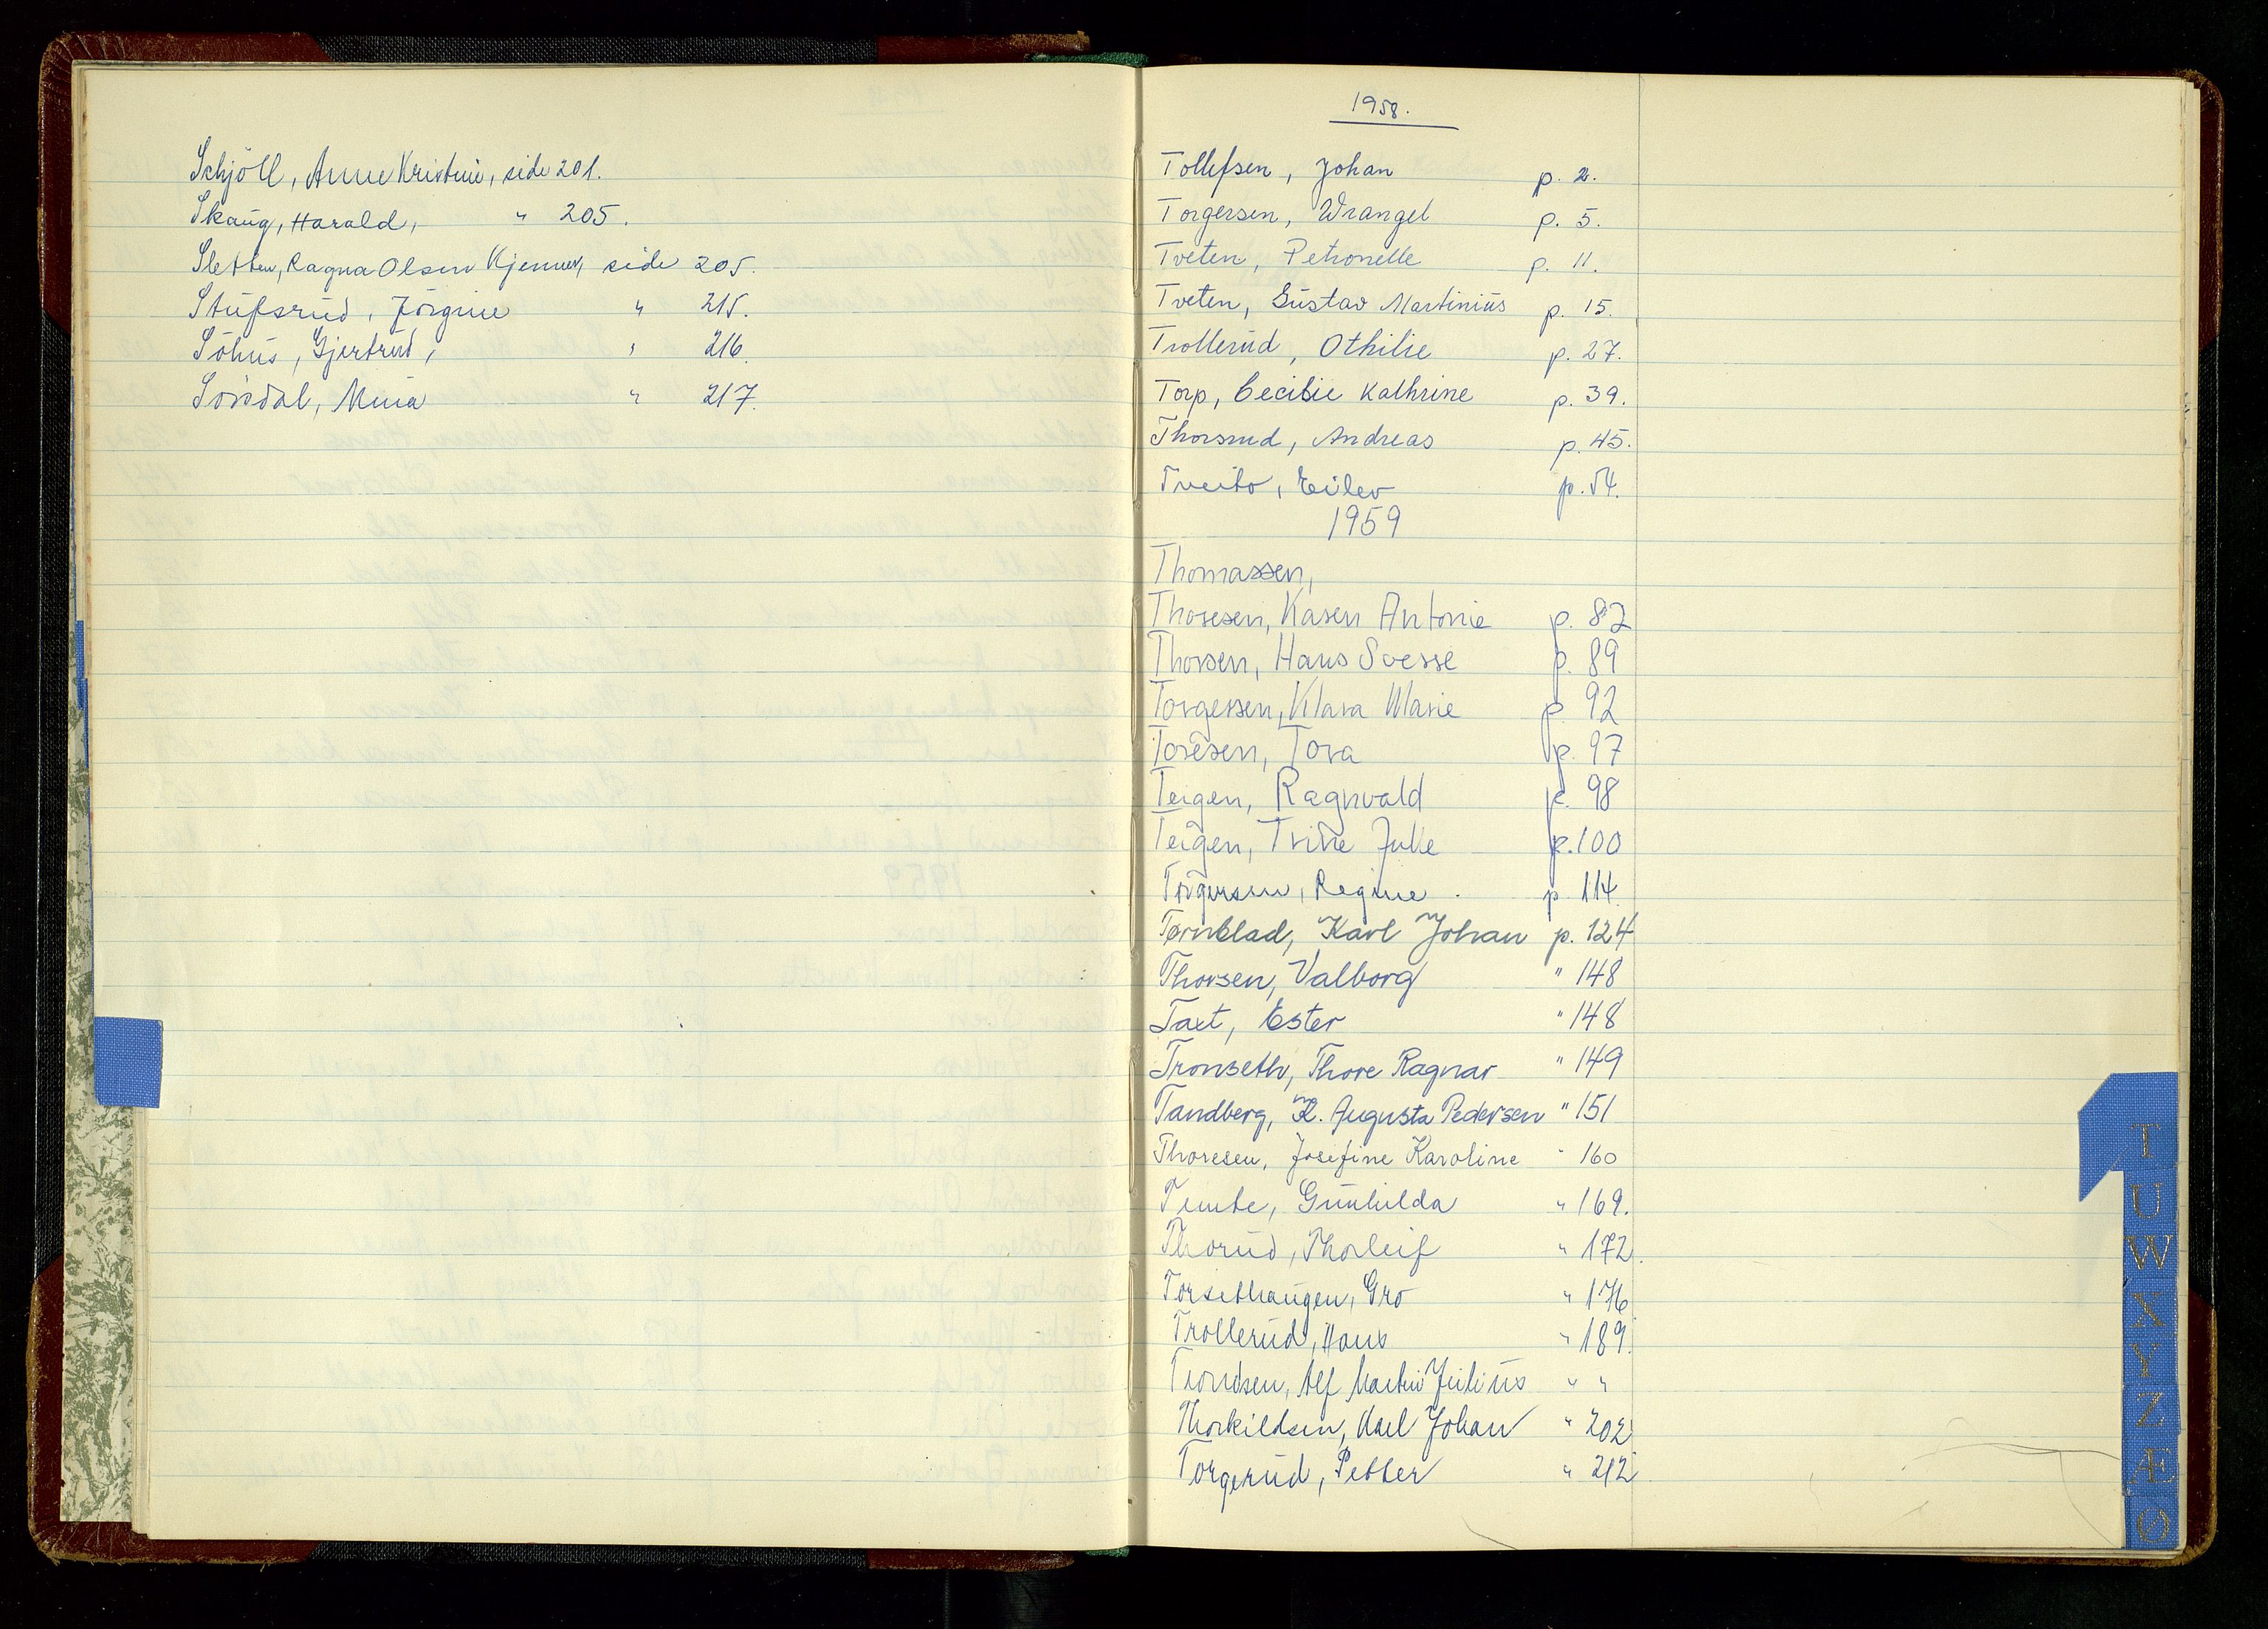 Schjöll, Anne Kristine, side 201.
Skaug, Harald, " 205.
Sletten, Ragna Olsen Kjenner, side 205.
Stufsrud, Jörgine " 215.
Söhus, Gjertrud, " 216.
Sördal, Mina " 217.
1958.
Tollefsen, Johan p. 2.
Torgersen, Wrangel p. 5.
Tveten, Petronelle p. 11.
Tveten, Gustav Martinius p. 15.
Trollerud, Othilie p. 27.
Torp, Cecilie Kathrine p. 39.
Thorsrud, Andreas p. 45.
Tveito, Eilev p. 54.
1959
Thomassen,
Thoresen, Karen Antonie p. 82
Thorsen, Hans Sverre p. 89
Torgersen, Klara Marie p. 92
Toresen, Tora p. 97
Teigen, Ragnvald p. 98
Teigen, Trine Julie p. 100
Torgersen, Regine p. 114
Tørnblad, Karl Johan p. 124
Thorsen, Valborg " 148
Taxt, Ester " 148
Tronseth, Thore Ragnar " 149
Tandberg, K. Augusta Pedersen " 151
Thoresen, Josefine Karoline " 160
Gunhilda " 169.
Thorud, Thorleif " 172.
Torsethaugen, Gro " 176
Trollerud, Hans " 189.
Trondsen, Alf Martin Julius " "
Thorkildsen, Karl Johan " 202
Torgerud, Petter " 212
T
U
W
X
Y
Z
Æ
Ø